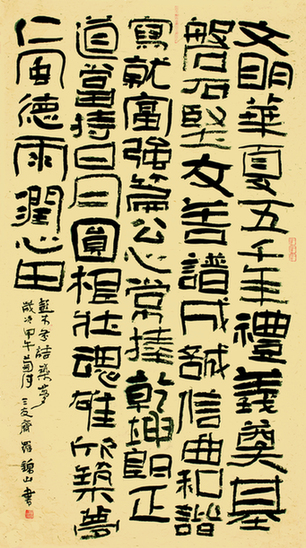 文明華夏五千年禮義奠基
磐石堅友善譜成誠信曲和諧
寫就富強篇公心常挂乾坤朗正
道當持日月圓壯魂雄築夢
仁風德雨潤心田
築夢
歲次甲午三友齋羅山書